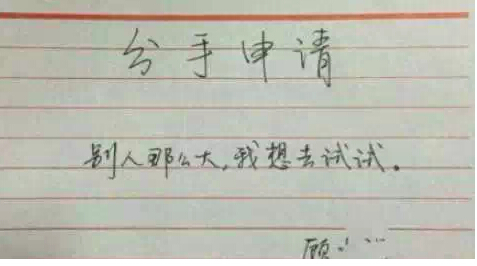 分手申请
别人那么大，我想去试试。
顾